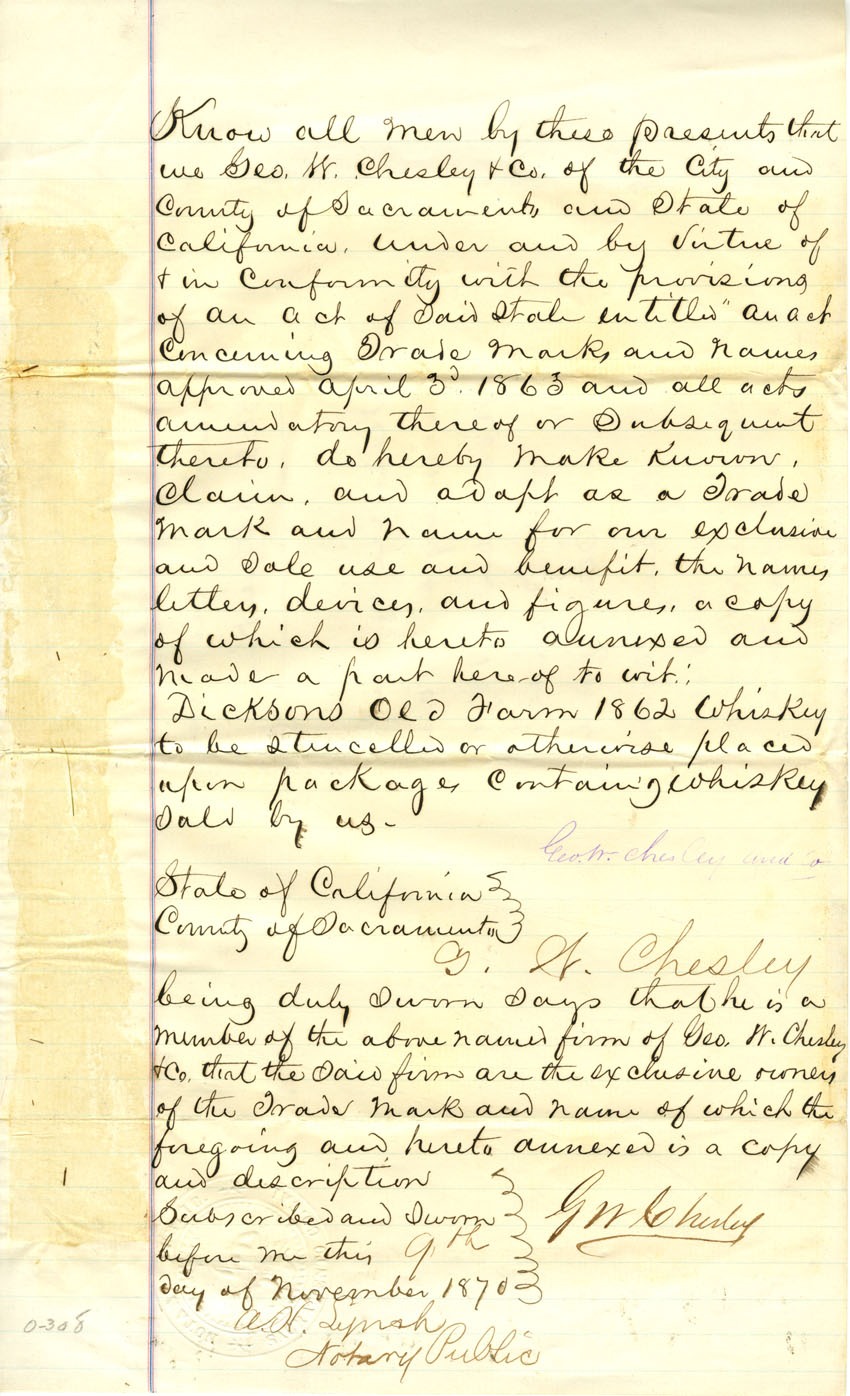 Know all men by these presents that
we Geo. W. Chesley & Co. of the City and
County of Sacramento and State of
California. under and by virtue of
& in Conformity with the provisions
of an act of Said State entitled "an act
Concerning Trade Marks and Names
approved April 3d. 1863 and all acts
amendatory thereof or Subsequent
thereto, do hereby Make Known,
Claim, and adapt as a Trade
Mark and Name for our exclusive
and Sole use and benefit. the Names
letters, devices, and figures, a copy
of which is hereto annexed and
Made a part here-of to wit.:
Dicksons Old Farm 1862 Whiskey
to be stencelled or otherwise placed
upon packages Containg whiskey
Sold by us-
Geo. W. Chesley and Co
State of California
County of Sacramento
G. W. Chesley
being duly Sworn Says that he is a
Member of the above named firm of Geo. W. Chesley
& Co. that the Said firm are the exclusive owners
of the Trade Mark and Name of which the
foregoing and hereto annexed is a copy
and description
Subscribed and Sworn
before me this 9th
day of November 1870
G W Chesley
Notary Public
0-308